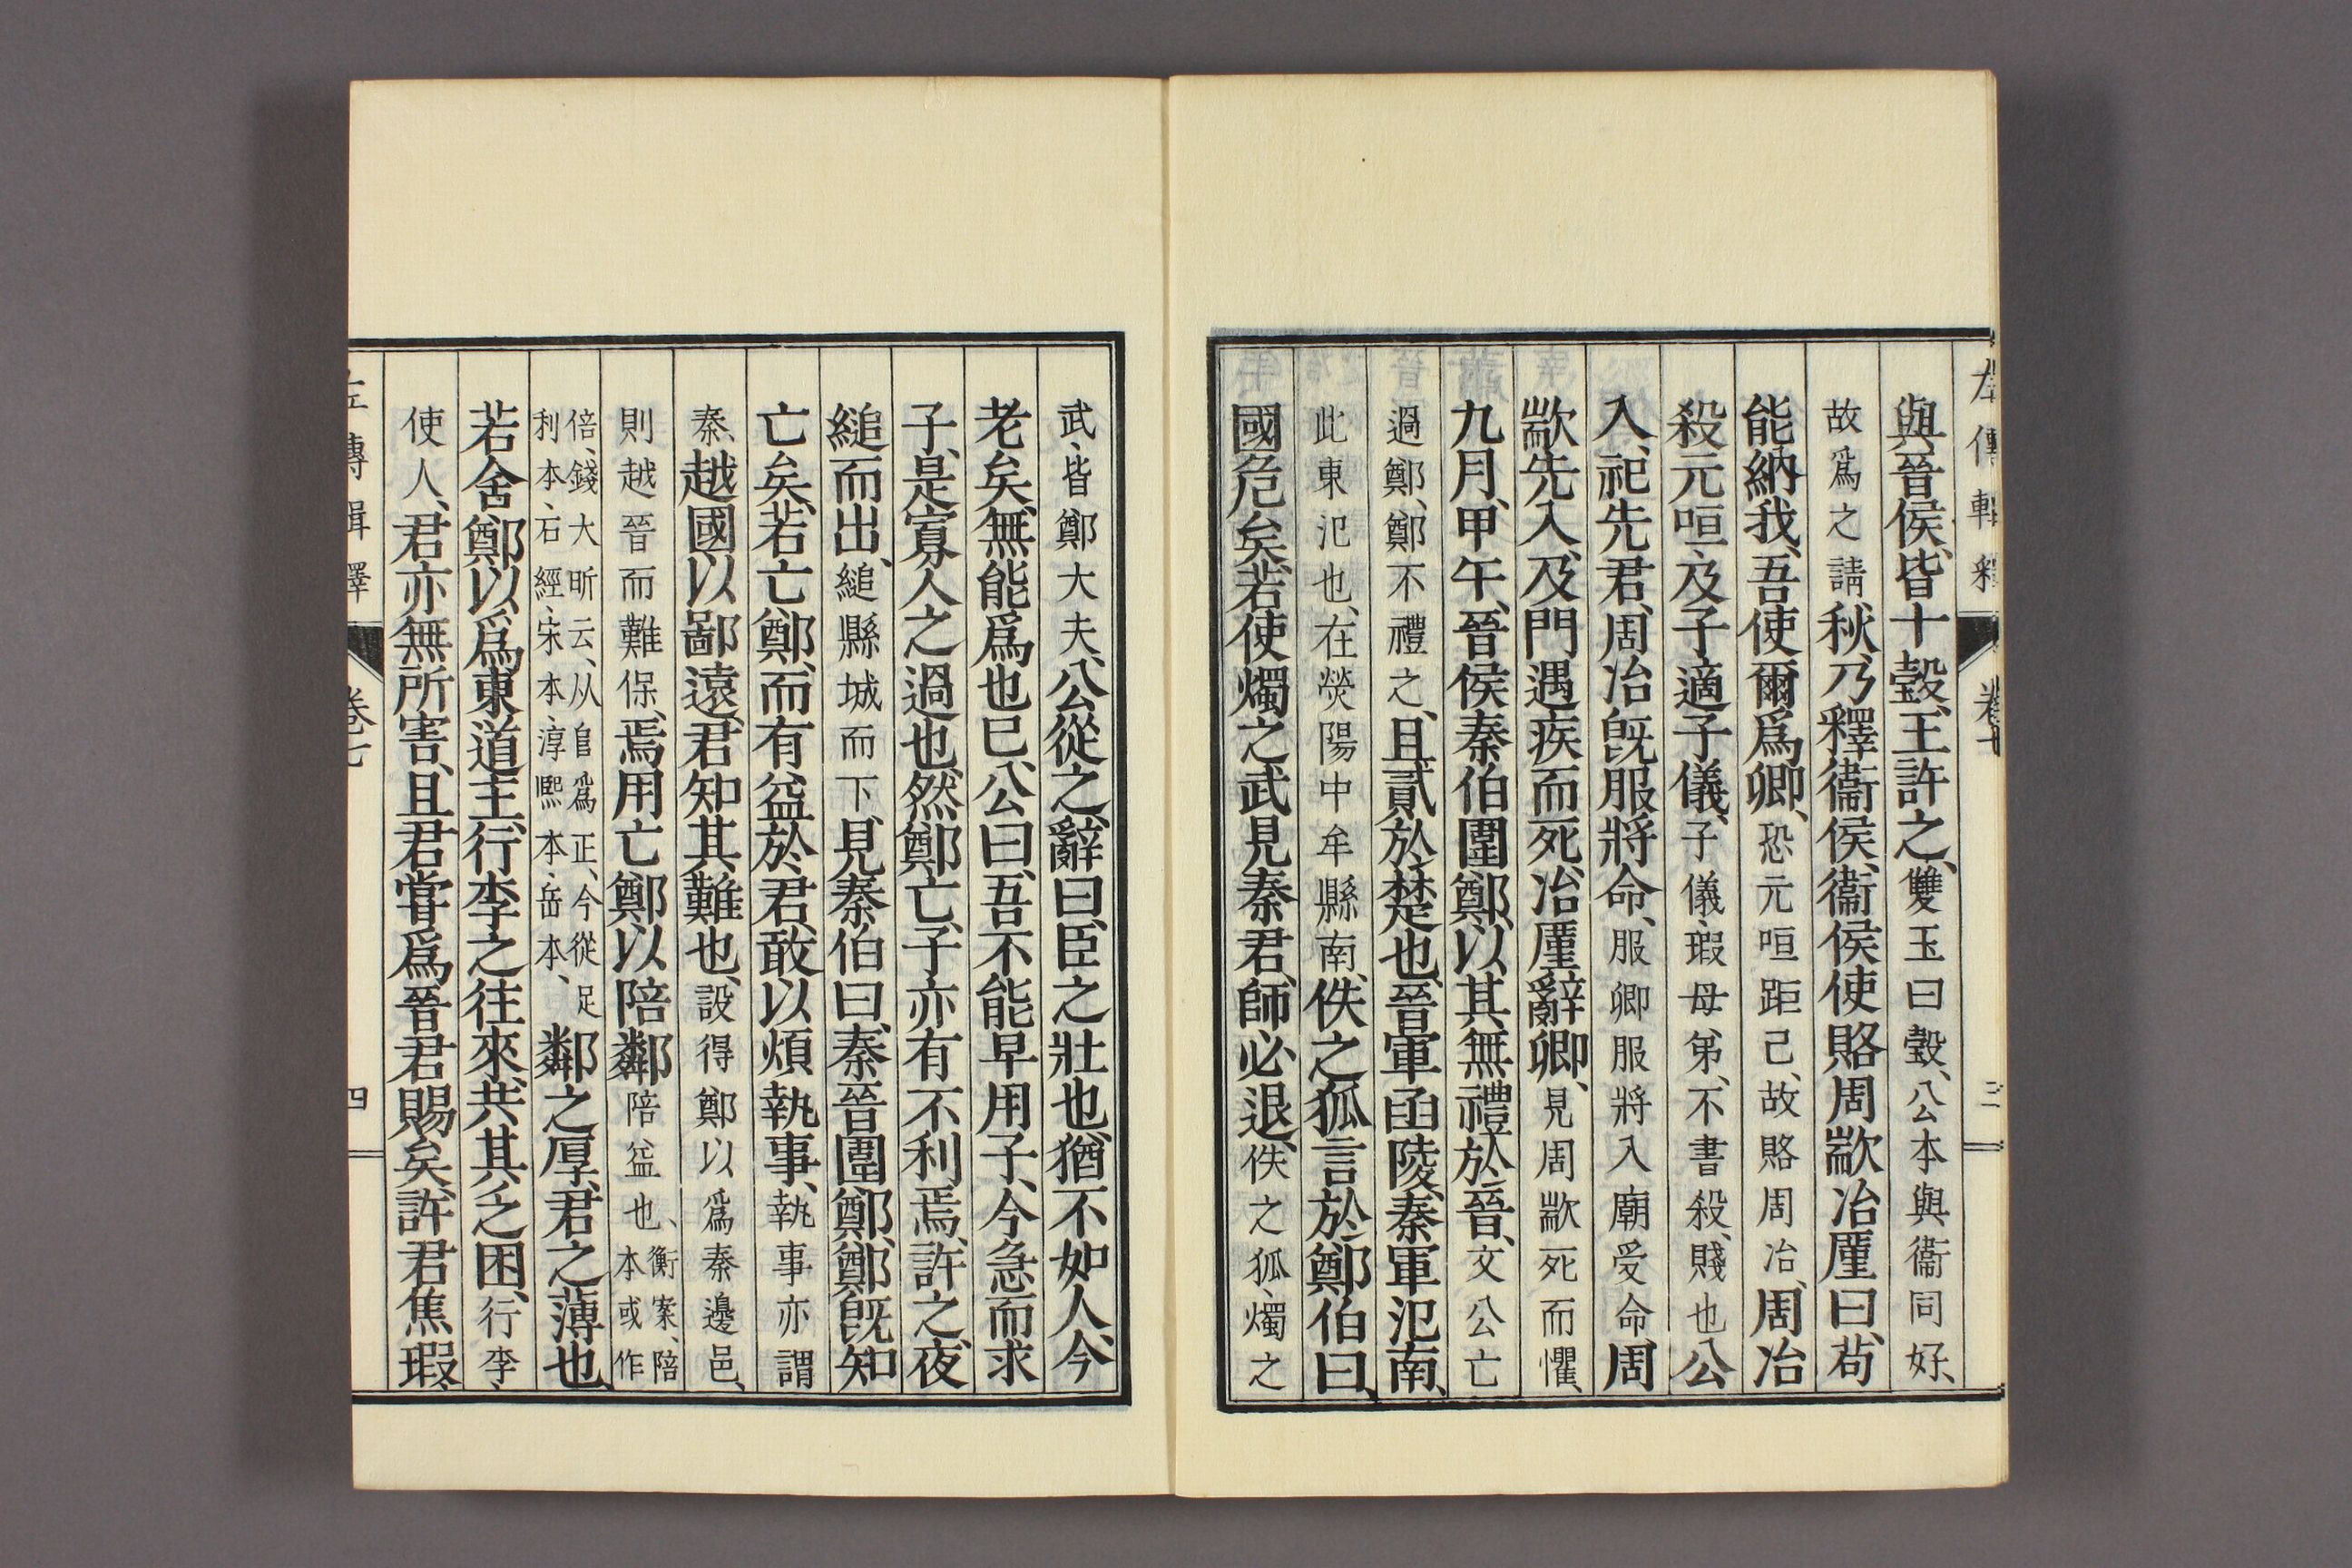 左傳輯釋 卷七 三
與晉侯、皆十瑴、王許之、雙玉曰瑴、公本與衞同好、
故爲之請秋、乃釋衞侯、衞侯使賂周歂冶厪曰、苟
能納我、吾使爾爲卿、恐元咺距己、故賂周冶、周冶
殺元咺、及子適子儀、子儀、瑕母弟、不書殺、賤也公
入、祀先君、周冶旣服將命、服卿服將入廟受命周
歂先入、及門遇疾而死、冶厪辭卿、見周歂死而懼、
九月、甲午、晉侯秦伯圍鄭、以其無禮於晉、文公亡
過鄭、鄭不禮之、且貳於楚也、晉軍函陵、秦軍氾南、
此東氾也、在熒陽中牟縣南、佚之狐言於鄭伯曰、
國危矣、若使燭之武見秦君、師必退、佚之狐、燭之
武、皆鄭大夫、公從之、辭曰、臣之壯也、猶不如人、今
老矣、無能爲也已、公曰、吾不能早用子、今急而求
子、是寡人之過也、然鄭亡、子亦有不利焉、許之、夜
縋而出、縋縣城而下、見秦伯曰、秦晉圍鄭、鄭旣知
亡矣、若亡鄭、而有益於君、敢以煩執事、執事亦謂
秦、越國以鄙遠、君知其難也、設得鄭以爲秦邊邑、
則越晉而難保、焉用亡鄭以陪鄰陪益也、衡案、陪本或作
倍、錢大昕云、从𨸏爲正、今從足利本、石經、宋本、淳熙本、岳本、鄰之厚、君之薄也、
若舍鄭以爲東道主、行李之往來、共其乏困、行李、
使人、君亦無所害、且君嘗爲晉君賜矣、許君焦瑕、
左傳輯釋 卷七 四